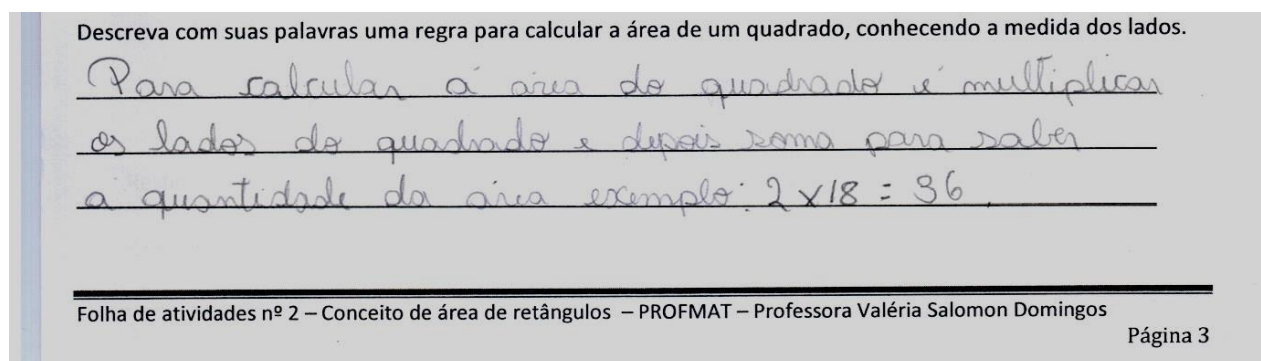 Descreva com suas palavras uma regra para calcular a área de um quadrado, conhecendo a medida dos lados.
Para calcular a área do quadrado é multiplicar
os lados do quadrado e depois soma para saber
a quantidade da área exemplo: 2 x 18 = 36
Folha de atividades nº 2 – Conceito de área de retângulos – PROFMAT – Professora Valéria Salomon Domingos
Página 3